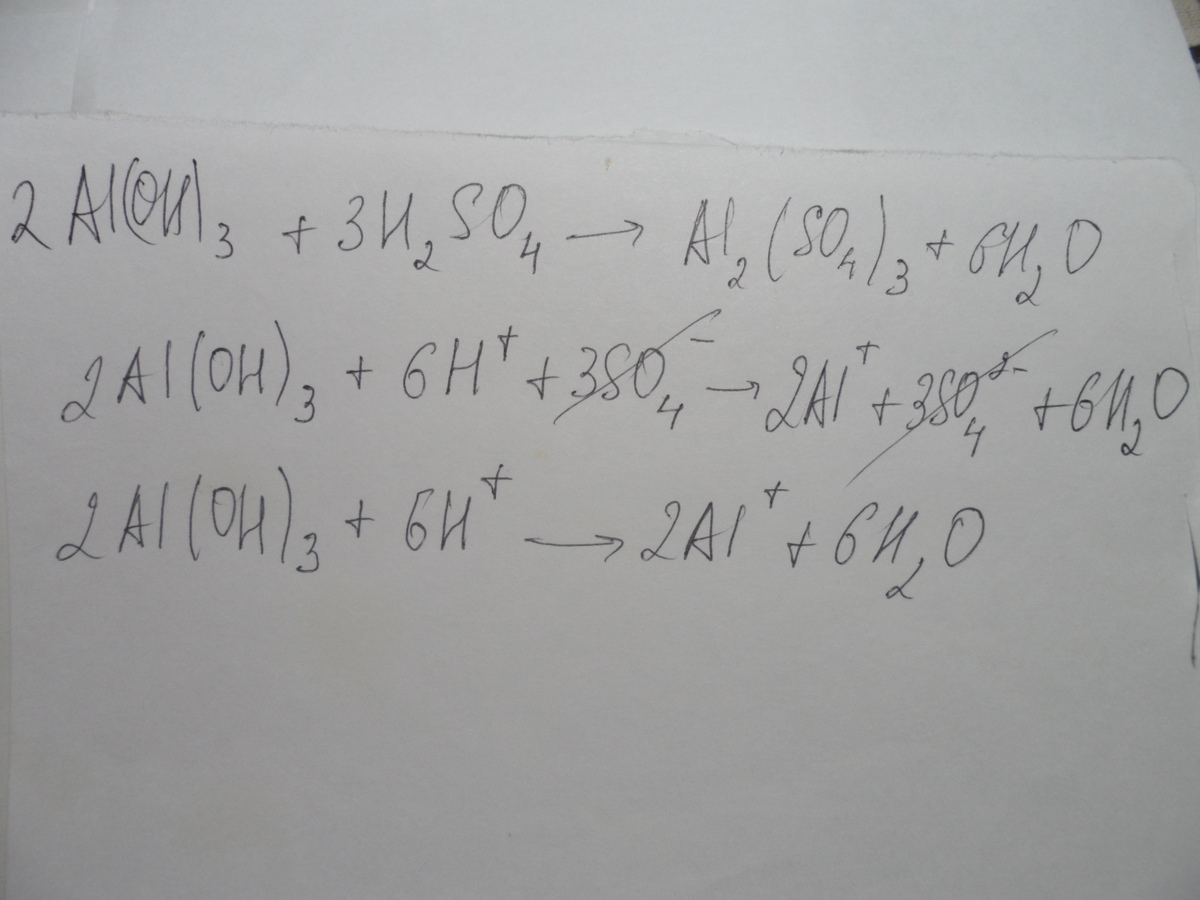 2Al(OH)₃ + 3H₂SO₄ → Al₂(SO₄)₃ + 6H₂O
2Al(OH)₃ + 6H⁺ + 3SO₄⁻ → 2Al⁺ + 3SO₄²⁻ + 6H₂O
2Al(OH)₃ + 6H⁺ → 2Al⁺ + 6H₂O